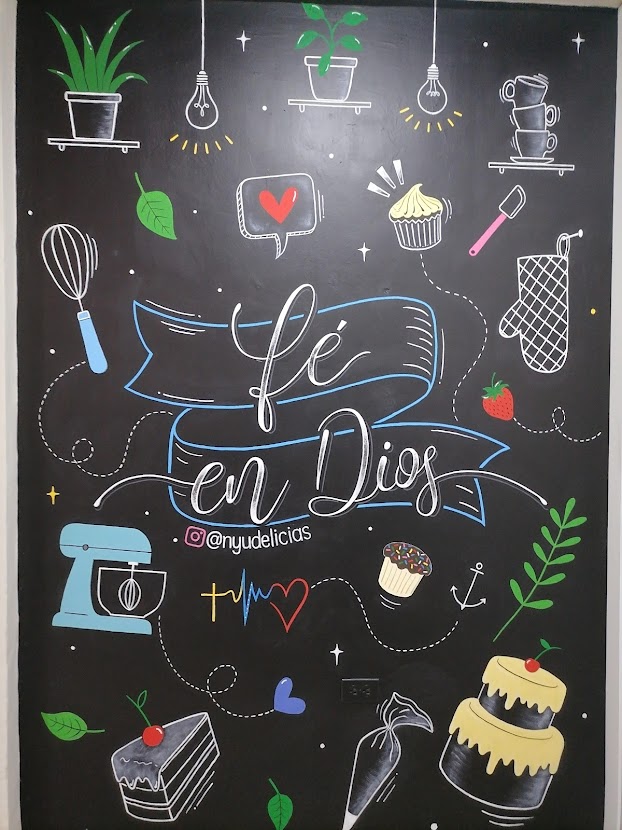 fé
en Dios
@nyudelicias